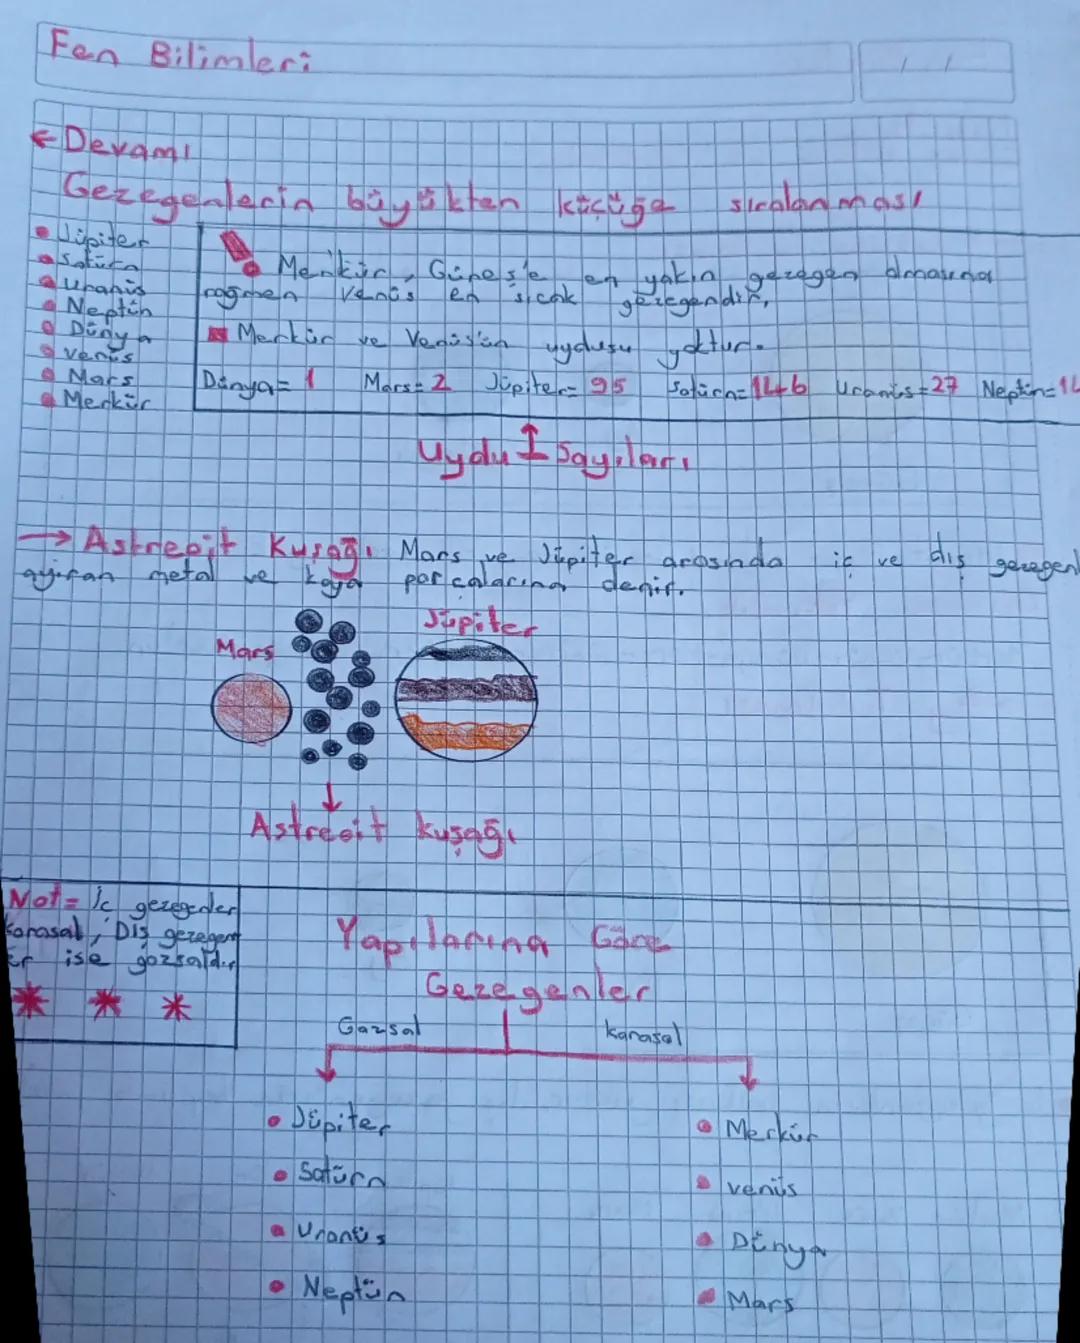 Fen Bilimleri
/ /
← Devamı
Gezegenlerin büyükten küçüğe sıralanması
• Jüpiter
• Satürn
• Uranüs
• Neptün
• Dünya
• Venüs
• Mars
• Merkür
• Merkür, Güneş'e en yakın gezegen olmasına
rağmen Venüs en sıcak gezegendir.
Merkür ve Venüs'ün uydusu yoktur.
Dünya= 1 Mars= 2 Jüpiter= 95 Satürn= 146 Uranüs= 27 Neptün= 14
Uydu Sayıları
→ Astreoit Kuşağı Mars ve Jüpiter arasında iç ve dış gezegen
ayıran metal ve kaya parçalarına denir.
Mars
Jüpiter
Astreoit kuşağı
Not= İç gezegenler
karasal, Dış gezegen
ler ise gazsaldır
* * *
Yapılarına Göre
Gezegenler
Gazsal
Karasal
• Jüpiter
• Satürn
• Uranüs
• Neptün
• Merkür
• Venüs
• Dünya
• Mars